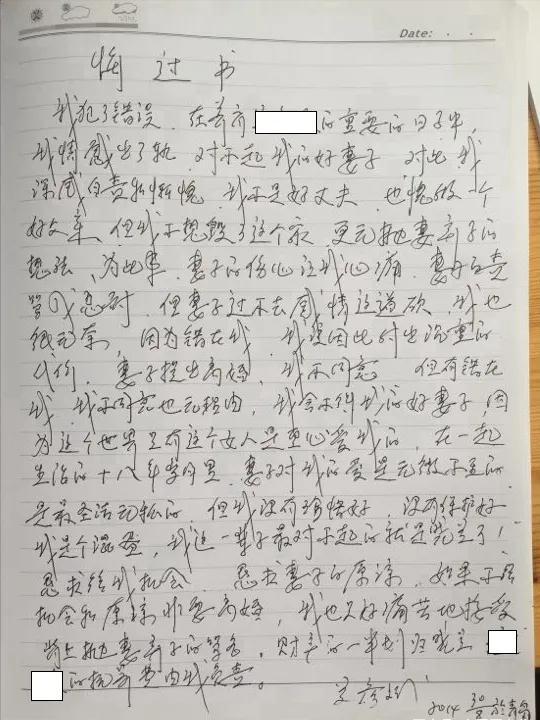 Date: · ·
悔过书
我犯了错误，在养育的重要的日子中，
我情感出了轨，对不起我的好妻子，对此我
深感自责和惭愧，我不是好丈夫，也愧做一个
好父亲，但我不想毁了这个家，更无抛妻弃子的
想法，为此事，妻子的伤心让我心痛，妻子的责
骂我忍耐，但妻子过不去感情这道砍，我也
很无奈，因为错在我，我愿因此付出沉重的
代价，妻子提出离婚，我不同意，但有错在
我，我不同意也无理由，我舍不得我的好妻子，因
为这个世界只有这个女人是真心爱我的，在一起
生活的十八年岁月里，妻子对我的爱是无微不至的
是最圣洁无私的，但我没有珍惜好，没有保护好
我是个混蛋，我这一辈子最对不起的就是兰了！
恳求给我机会，恳求妻子的原谅，如果不给
机会和原谅非要离婚，我也只好痛苦地接受
背上抛妻弃子的骂名，财产的一半划归兰
的抚养费由我负责。
2014